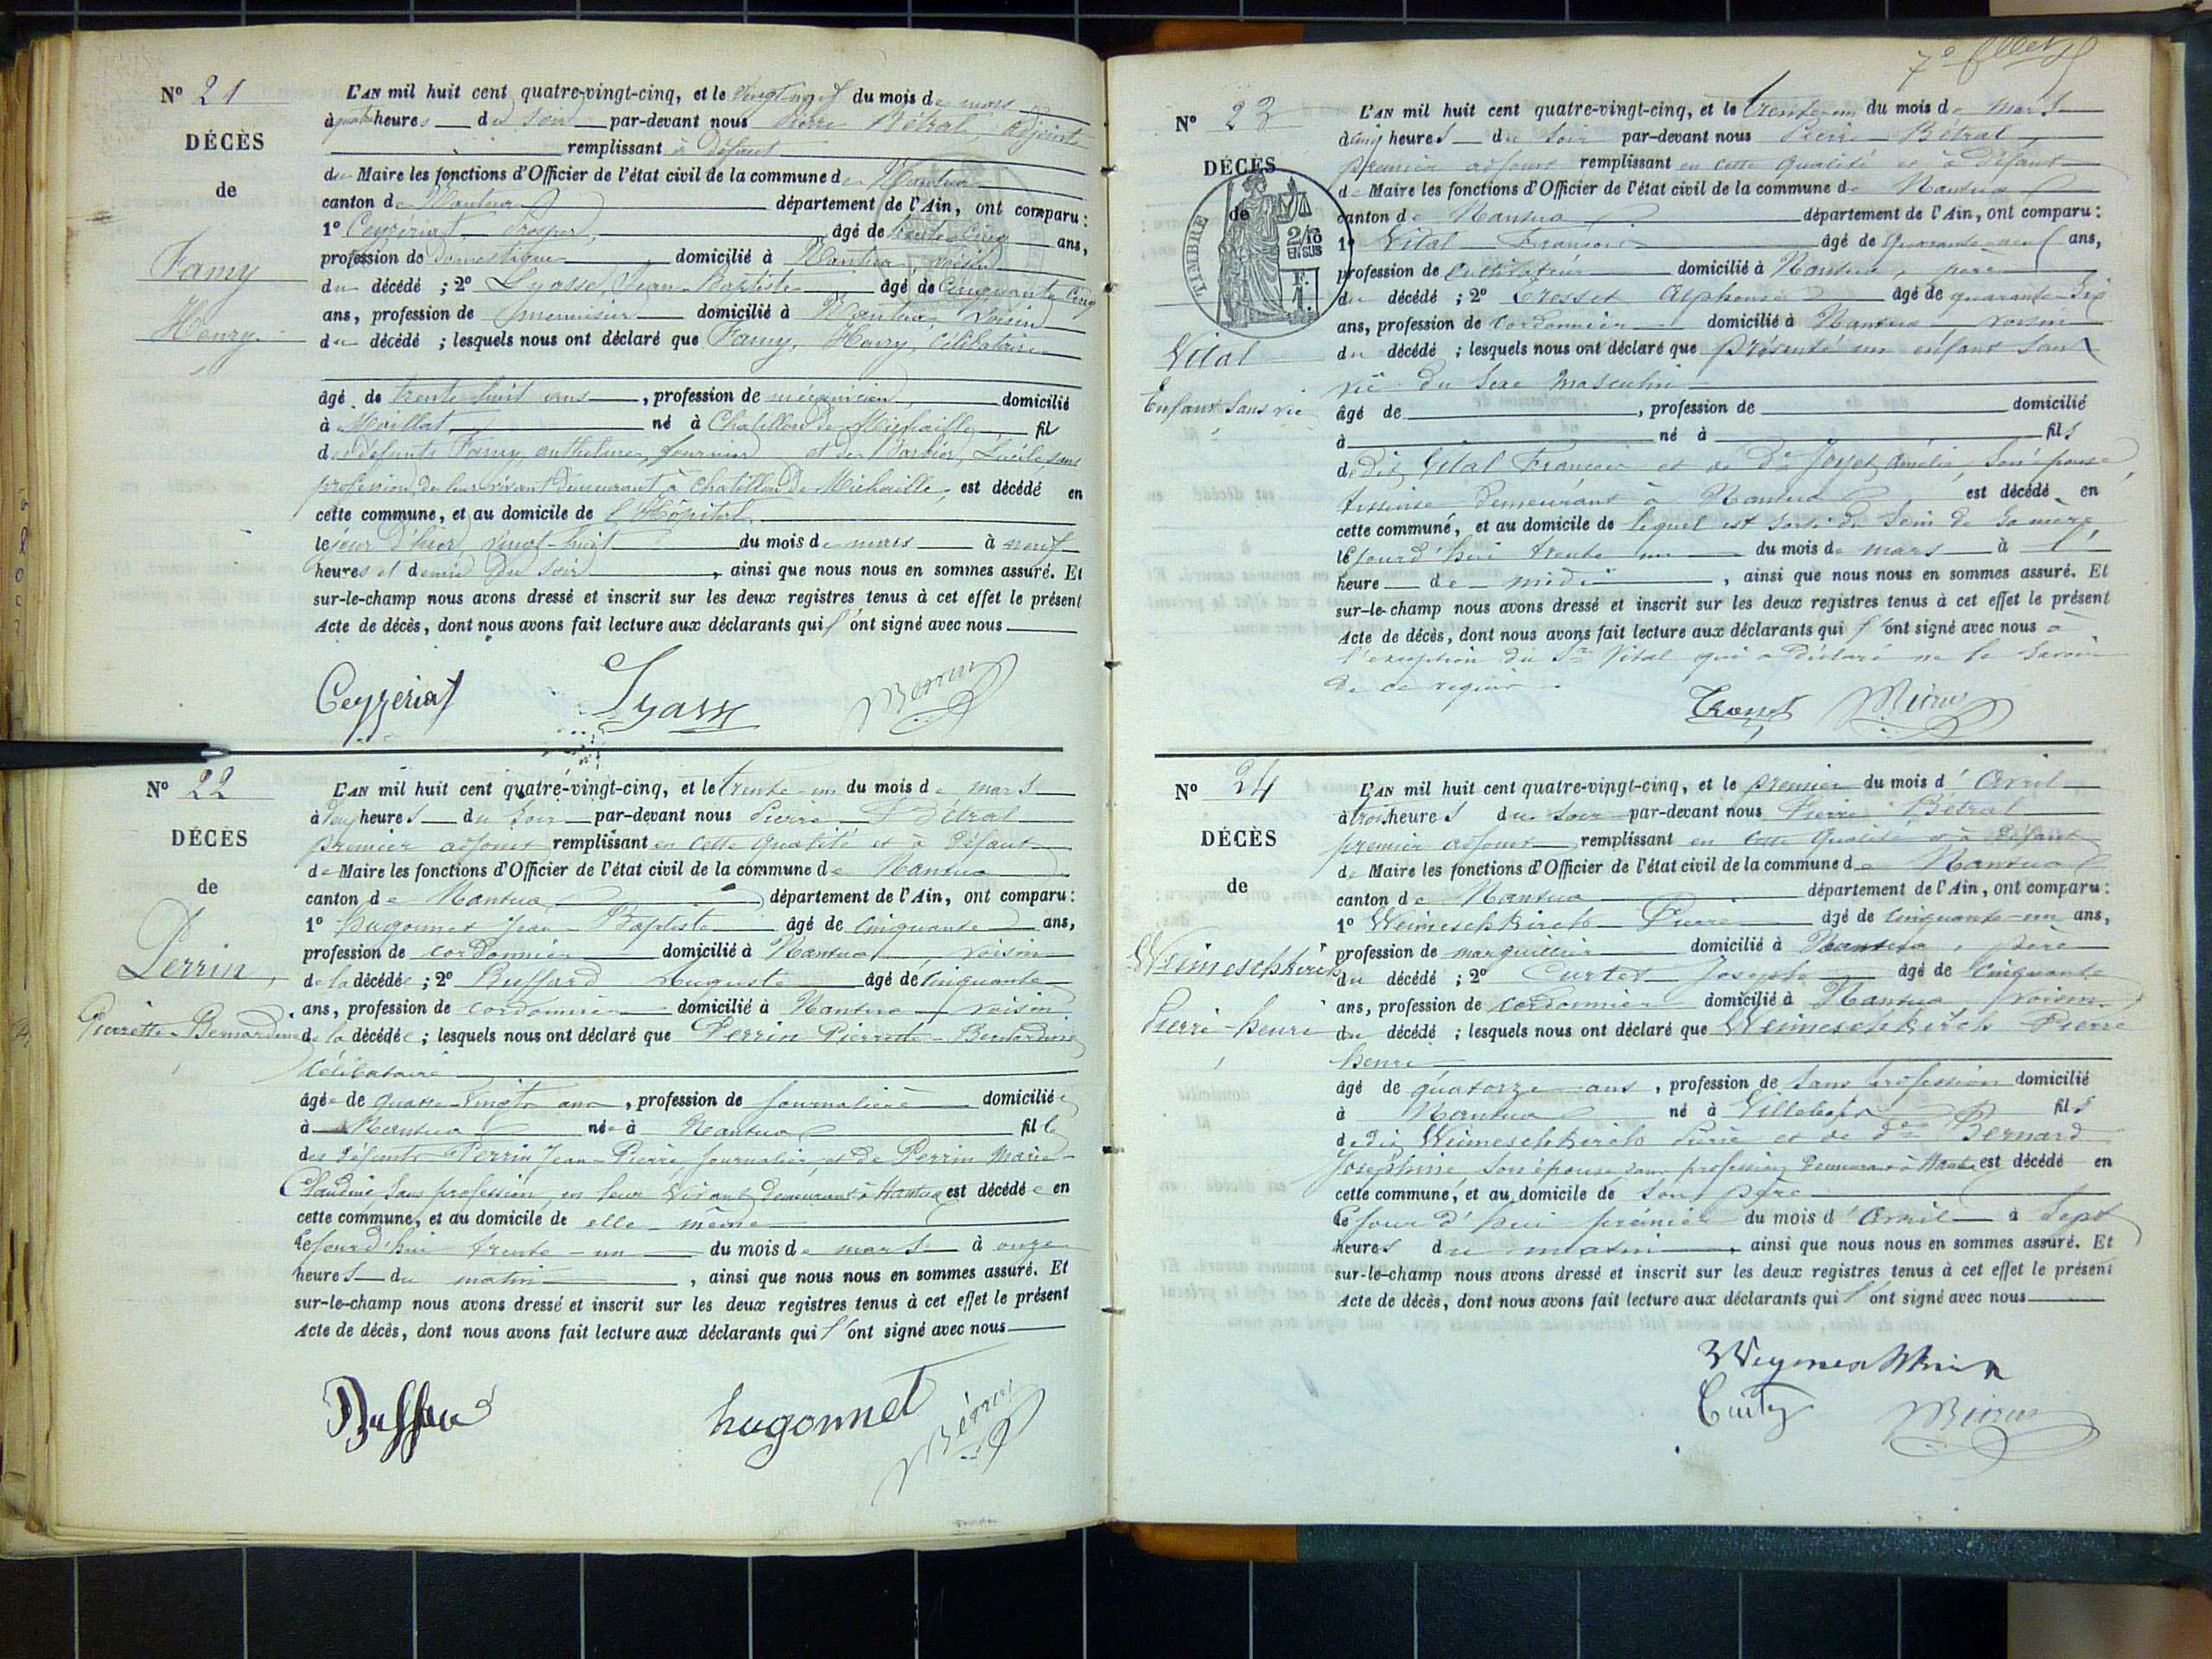 Nº 21
DÉCÈS
de
Famy
Henry
L'AN mil huit cent quatre-vingt-cinq, et le vingt neuf du mois de mars
à quatre heures du soir par-devant nous Pierre Bétral adjoint
remplissant à défaut
du Maire les fonctions d'Officier de l'état civil de la commune de Nantua
canton de Nantua département de l'Ain, ont comparu :
1º Ceyzériat Prosper, âgé de trente cinq ans,
profession de domestique domicilié à Nantua, voisin
du décédé ; 2º Lyasse Jean-Baptiste âgé de cinquante cinq
ans, profession de menuisier domicilié à Nantua voisin
du décédé ; lesquels nous ont déclaré que Famy, Henry, célibataire
âgé de trente huit ans, profession de mécanicien, domicilié
à Maillat, né à Chatillon de Michaille, fil
des défunts Famy, journier et de Barbier, Lucile sans
profession de leur vivant demeurant à Chatillon de Michaille, est décédé en
cette commune, et au domicile de l'Hôpital
le jour d'hier vingt-huit du mois de mars à neuf
heures et demie du soir, ainsi que nous nous en sommes assuré. Et
sur-le-champ nous avons dressé et inscrit sur les deux registres tenus à cet effet le présent
Acte de décès, dont nous avons fait lecture aux déclarants qui l'ont signé avec nous
Ceyzeriat Lyasse
Nº 22
DÉCÈS
de
Perrin,
Pierrette-Bernardine
L'AN mil huit cent quatre-vingt-cinq, et le trente-un du mois de mars
à deux heures du soir par-devant nous Pierre Bétral
premier adjoint remplissant en cette qualité et à défaut
de Maire les fonctions d'Officier de l'état civil de la commune de Nantua
canton de Nantua département de l'Ain, ont comparu :
1º hugonnet Jean-Baptiste âgé de cinquante ans,
profession de cordonnier domicilié à Nantua, voisin
de la décédée ; 2º Buffard Auguste âgé de cinquante
ans, profession de cordonnier domicilié à Nantua voisin
de la décédée ; lesquels nous ont déclaré que Perrin Pierrette-Bernardine
célibataire
âgée de quatre-vingts ans, profession de journalière domiciliée
à Nantua née à Nantua fille
des défunts Perrin Jean-Pierre, journalier, et de Perrin Marie-
Claudine sans profession, en leur vivant demeurant à Nantua est décédée en
cette commune, et au domicile de elle-même
le jourd'hui trente-un du mois de mars à onze
heures du matin, ainsi que nous nous en sommes assuré. Et
sur-le-champ nous avons dressé et inscrit sur les deux registres tenus à cet effet le présent
Acte de décès, dont nous avons fait lecture aux déclarants qui l'ont signé avec nous
Buffard hugonnet
7e
Nº 23
DÉCÈS
de
TIMBRE
2/10
EN SUS
F.
1
Vital
Enfant sans vie
L'AN mil huit cent quatre-vingt-cinq, et le trente-un du mois de mars
à cinq heures du soir par-devant nous Pierre Bétral
premier adjoint remplissant en cette qualité et à défaut
de Maire les fonctions d'Officier de l'état civil de la commune de Nantua
canton de Nantua département de l'Ain, ont comparu :
1º Vital François âgé de quarante-neuf ans,
profession de cultivateur domicilié à Nantua, père
du décédé ; 2º Alphonse âgé de quarante-six
ans, profession de cordonnier domicilié à Nantua voisin
du décédé ; lesquels nous ont déclaré que présenté un enfant sans
vie du sexe masculin
âgé de , profession de domicilié
à né à fils
de dit Vital François et de de Joyet Amélie, son épouse
tisseuse demeurant à Nantua est décédé en
cette commune, et au domicile de lequel est sorti du sein de sa mère
le jourd'hui trente un du mois de mars à l'
heure de midi, ainsi que nous nous en sommes assuré. Et
sur-le-champ nous avons dressé et inscrit sur les deux registres tenus à cet effet le présent
Acte de décès, dont nous avons fait lecture aux déclarants qui l'ont signé avec nous à
l'exception du Sr Vital qui a déclaré ne le savoir
de ce requis.
Nº 24
DÉCÈS
de
Weimeschkirch
Pierre-henri
L'AN mil huit cent quatre-vingt-cinq, et le premier du mois d'Avril
à trois heures du soir par-devant nous Pierre Bétral
premier adjoint remplissant en cette qualité et à défaut
de Maire les fonctions d'Officier de l'état civil de la commune de Nantua
canton de Nantua département de l'Ain, ont comparu :
1º Weimeschkirch Pierre âgé de cinquante-un ans,
profession de marguillier domicilié à Nantua, père
du décédé ; 2º Curtet Joseph âgé de cinquante
ans, profession de cordonnier domicilié à Nantua voisin
du décédé ; lesquels nous ont déclaré que Weimeschkirch Pierre
henri
âgé de quatorze ans, profession de sans profession domicilié
à Nantua né à fils
de dit Weimeschkirch Pierre et de de Bernard
Joséphine son épouse sans profession demeurant à Nantua est décédé en
cette commune, et au domicile de son père
le jourd'hui premier du mois d'Avril à sept
heures du matin, ainsi que nous nous en sommes assuré. Et
sur-le-champ nous avons dressé et inscrit sur les deux registres tenus à cet effet le présent
Acte de décès, dont nous avons fait lecture aux déclarants qui l'ont signé avec nous